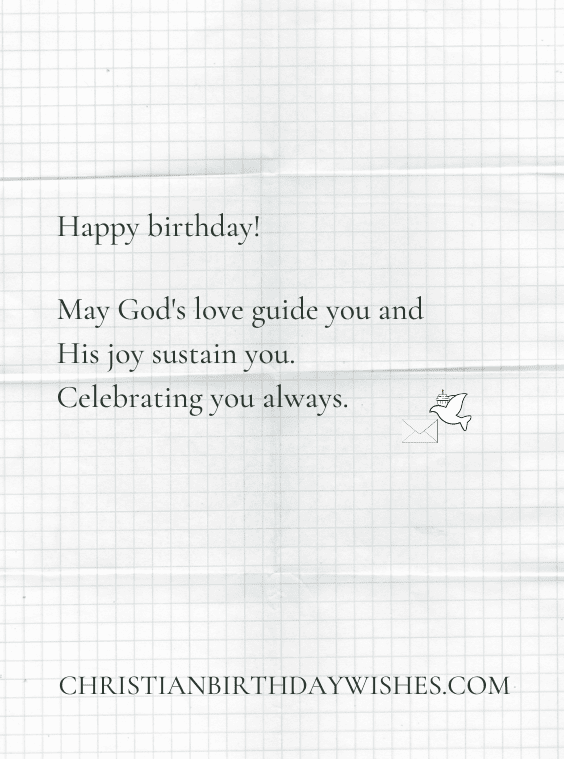 Happy birthday!
May God's love guide you and
His joy sustain you.
Celebrating you always.
CHRISTIANBIRTHDAYWISHES.COM